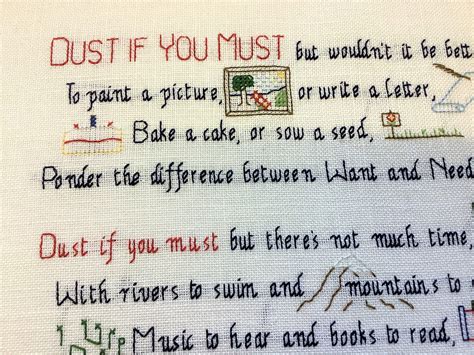 DUST IF YOU MUST but wouldn't it be bett
To paint a picture, or write a letter,
Bake a cake, or sow a seed,
Ponder the difference between Want and Need
Dust if you must but there's not much time,
With rivers to swim and mountains to
Music to hear and books to read,